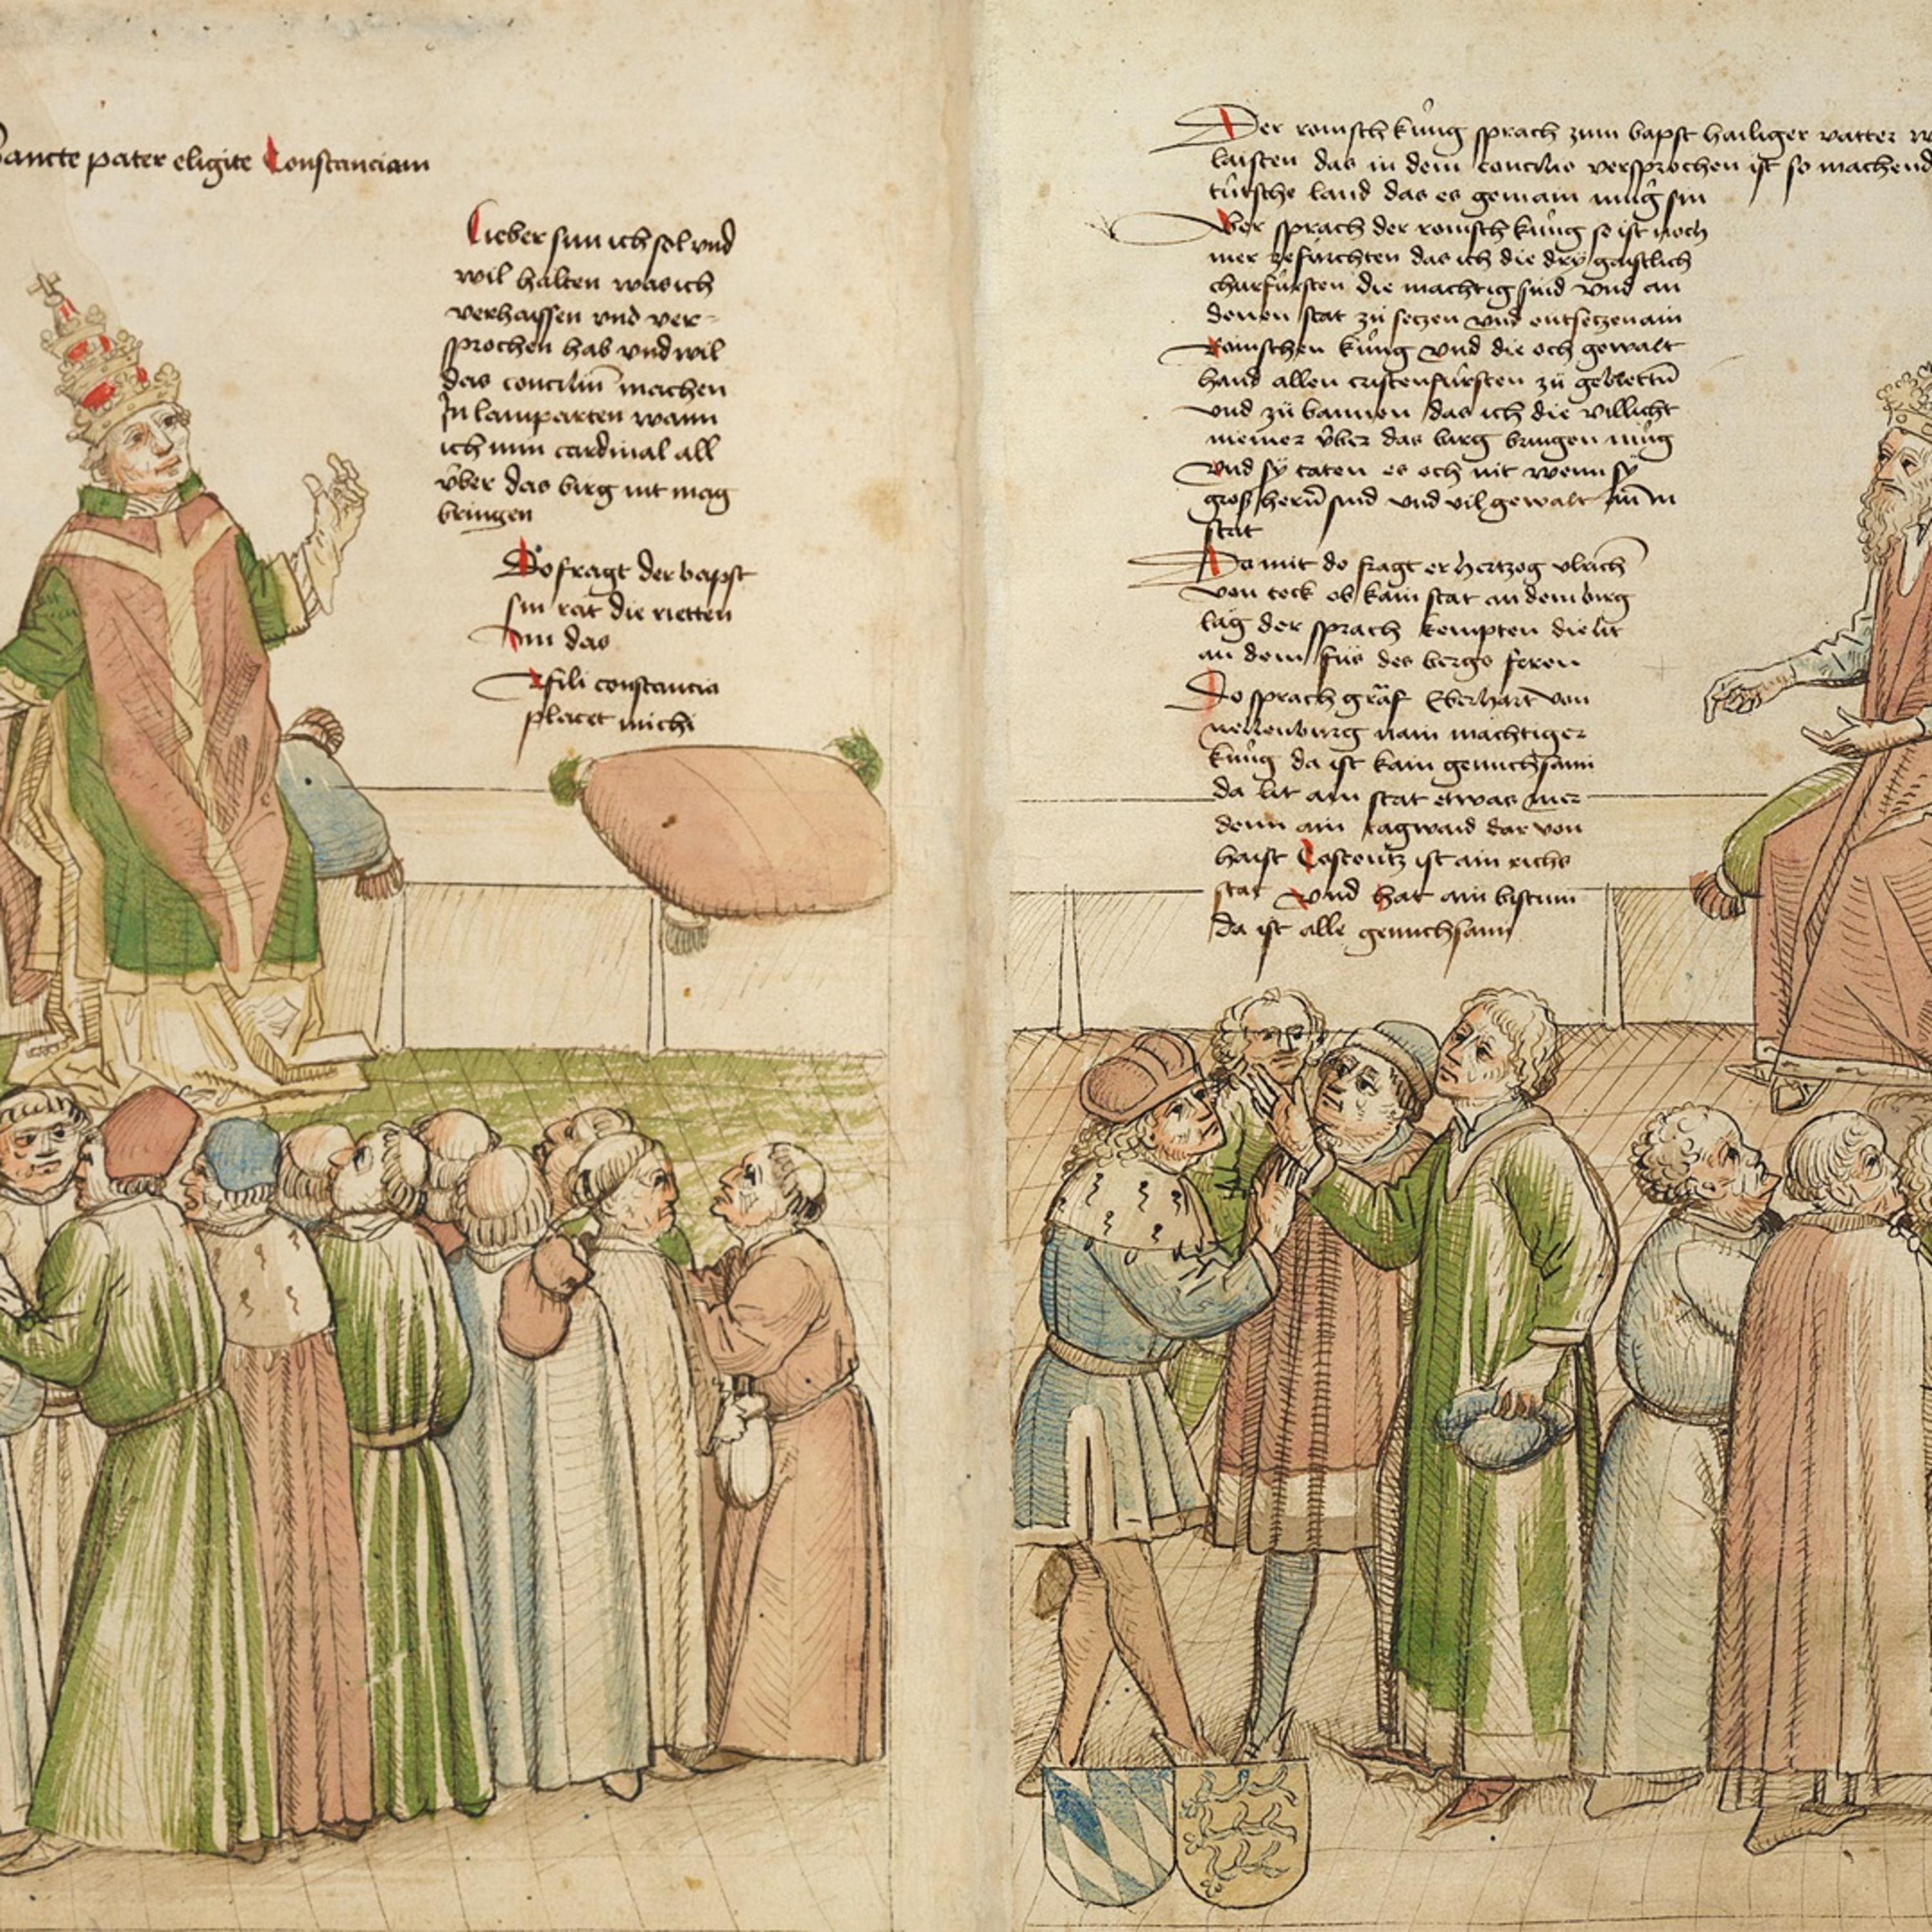 Sancte pater eligite Constanciam
Lieber sun ich sol vnd
wil halten was ich
verhaissen vnd ver-
sprochen hab vnd wil
das conciliū machen
In lamparten wann
ich min cardinal all
über das birg nit mag
bringen
Do fragt der bapst
sin rat die rietten
im das
O fili constancia
placet michi
Der romisch küng sprach zum bapst hailiger vatter
laisten das in dem concilio versprochen ist so machend
tütsche land das es gemain müg sin
Aber sprach der romisch küng so ist noch
mer zefürchten das ich die dry gaistlich
churfürsten die machtig sind vnd an
denen stat zü setzen vnd entsetzen ain
Romischen küng vnd die och gewalt
hand allen cristenfürsten zü gebiettn̄
vnd zü bannen das ich die villicht
niemer über das birg bringen müg
vnd sy taten es och nit wenn sy
groß hern̄ sind vnd vil gewalt an in
stat
Da mit do fragt er hertzog vlrich
von teck ob kain stat an dem birg
läg der sprach kempten die lit
an dem füs des bergs feren
Do sprach gräf Eberhart von
nellenburg nain mächtiger
küng da ist kain genuchsami
da lit ain stat etwas mer
denn ain tagwaid dar von
haist Costentz ist ain richs
stat vnd hat ain bistum
da ist alle genuchsami